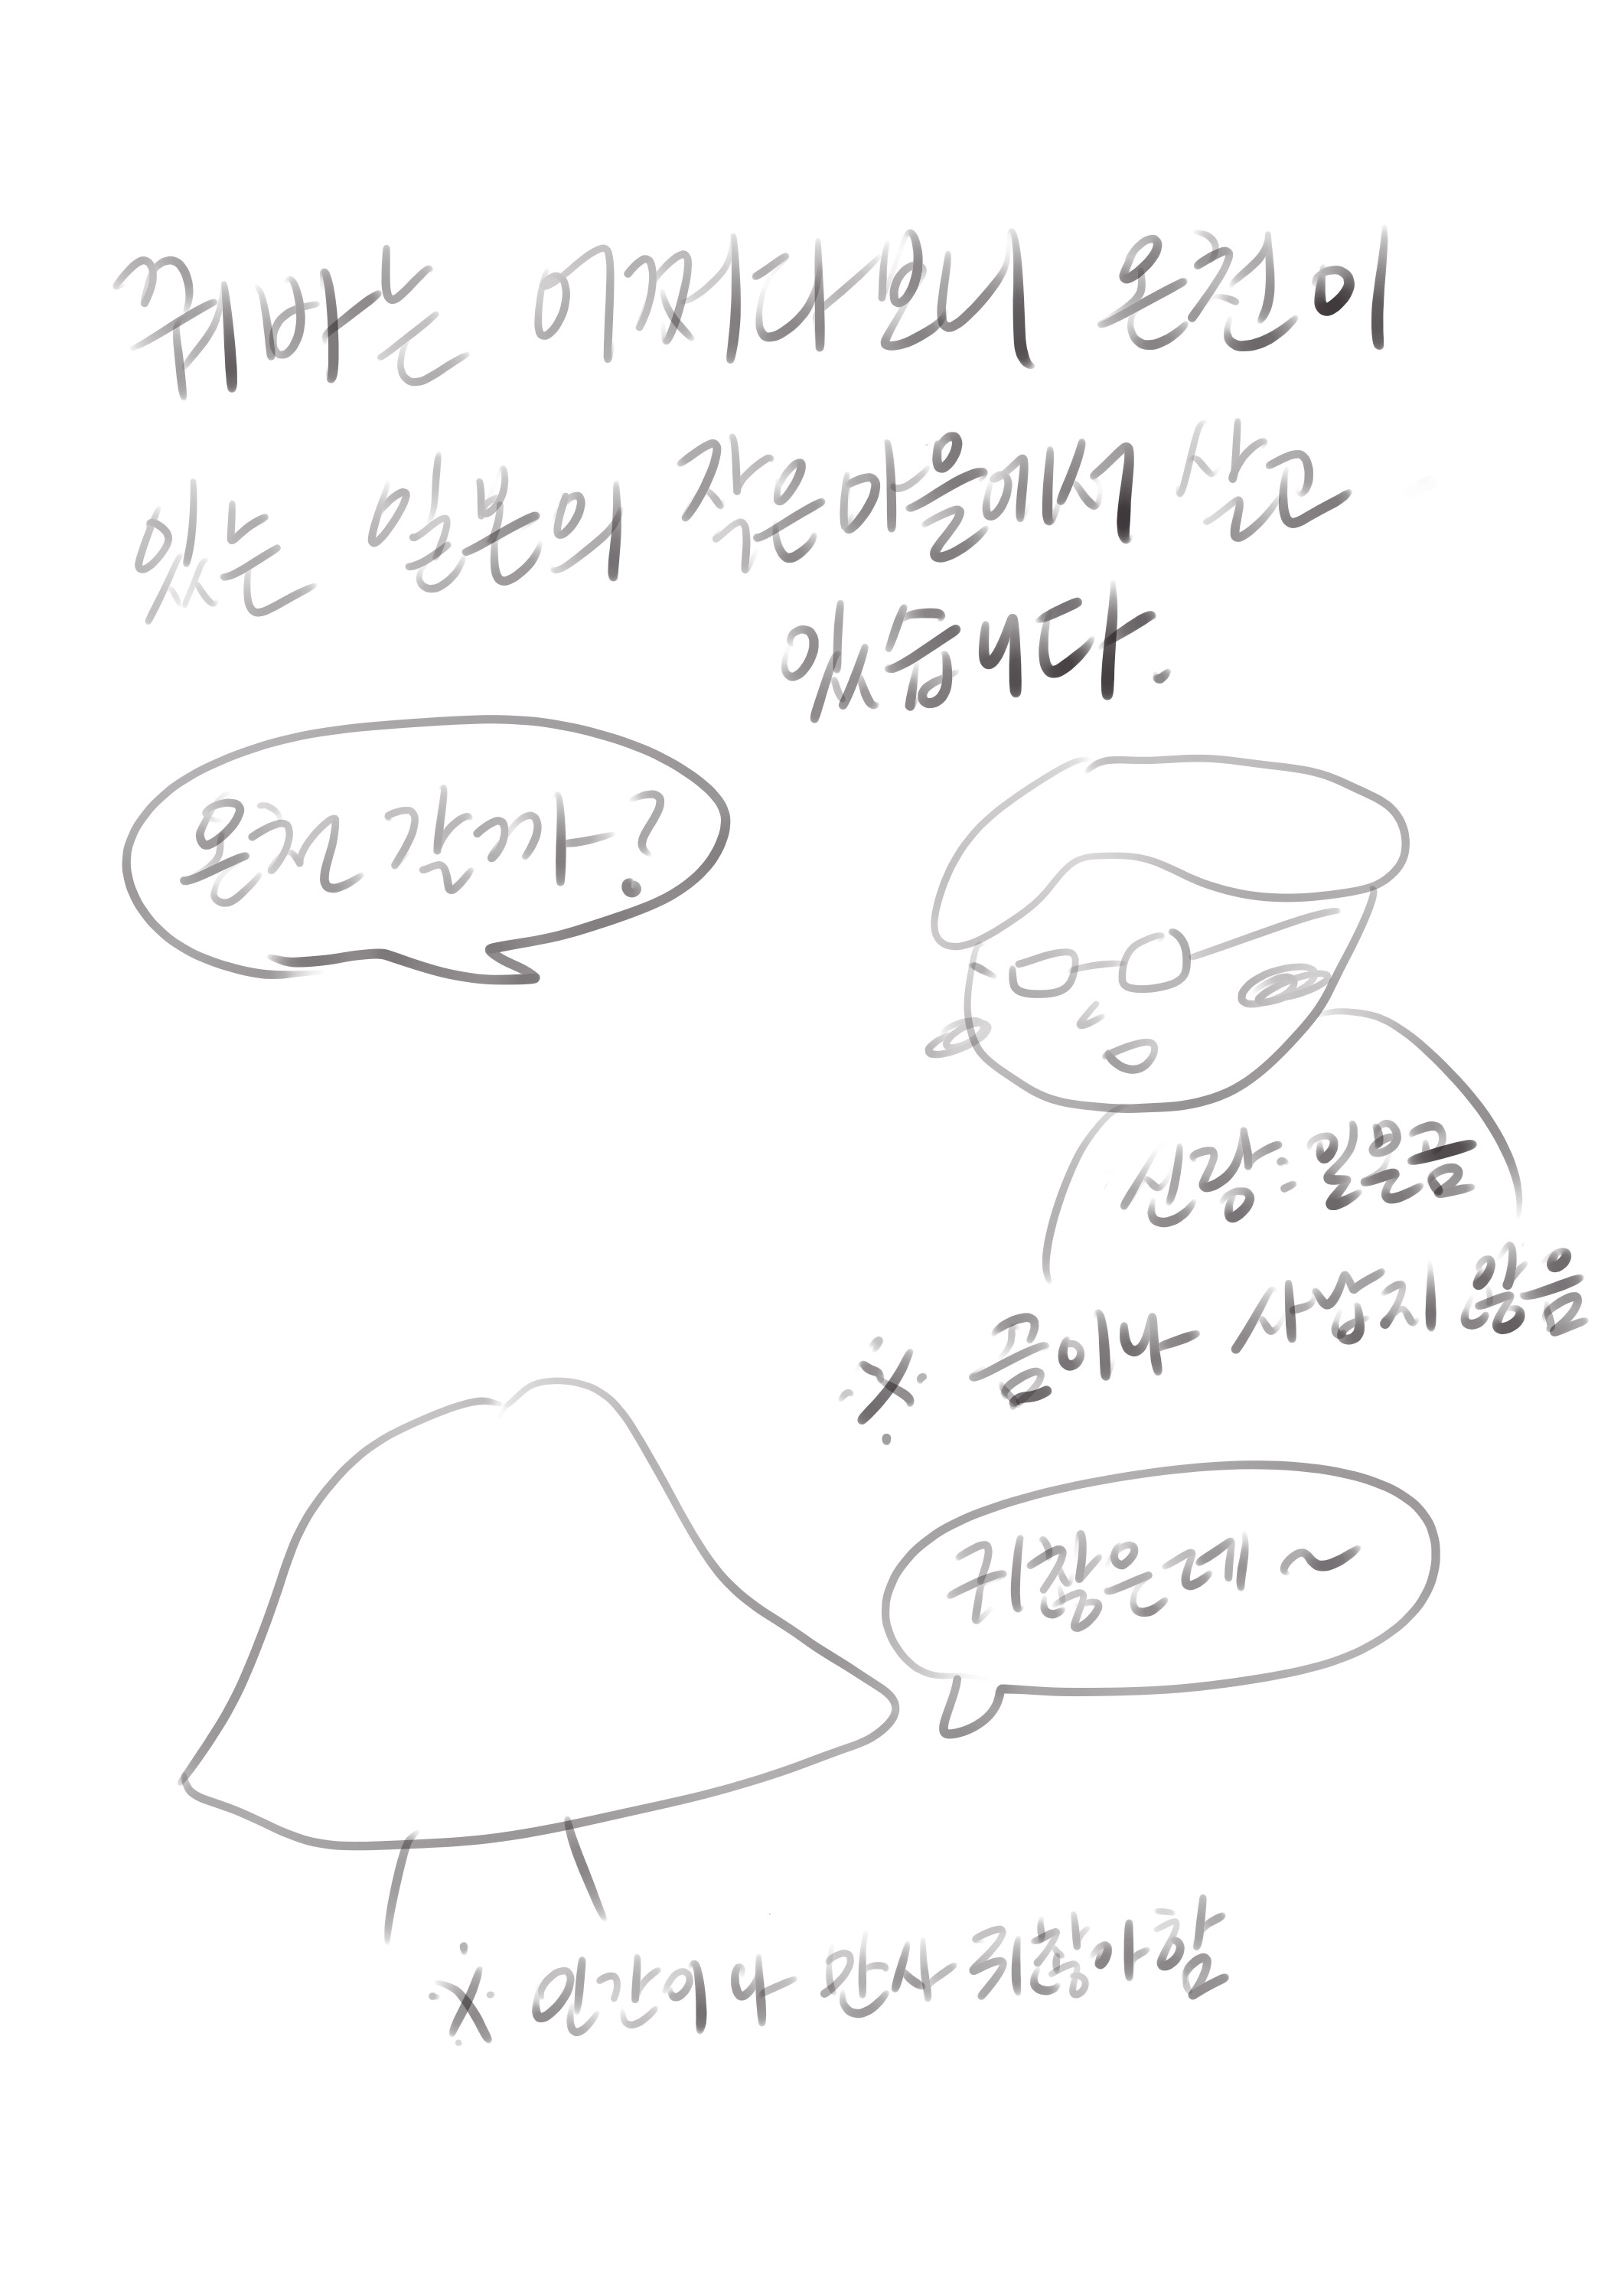 쿠바는 여기저기 온천이
있는 일본의 작은마을에서 살고
있습니다.
온천 갈까?
신랑: 일본곰
※ 곰이나 사납지 않음
귀찮은데~
※ 인간이나 만사 귀찮아함